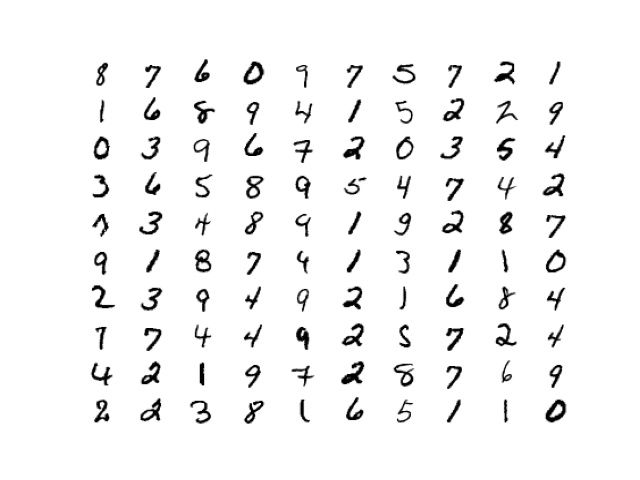 8 7 6 0 9 7 5 7 2 1
1 6 8 9 4 1 5 2 2 9
0 3 9 6 7 2 0 3 5 4
3 6 5 8 9 5 4 7 4 2
3 4 8 9 1 9 2 8 7
9 1 8 7 4 1 3 1 1 0
2 3 9 4 9 2 1 6 8 4
7 7 4 4 9 2 5 7 2 4
4 2 1 9 7 2 8 7 6 9
2 2 3 8 1 6 5 1 1 0